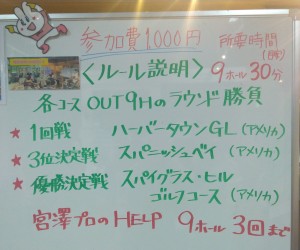 参加費1000円 所要時間
(目安)
〈ルール説明〉 9ホール 30分
各コース OUT9Hのラウンド勝負
★ 1回戦 ハーバータウンGL (アメリカ)
★ 3位決定戦 スパニッシュベイ (アメリカ)
★ 優勝決定戦 スパイグラス・ヒル
ゴルフコース (アメリカ)
宮澤プロのHELP 9ホール 3回まで